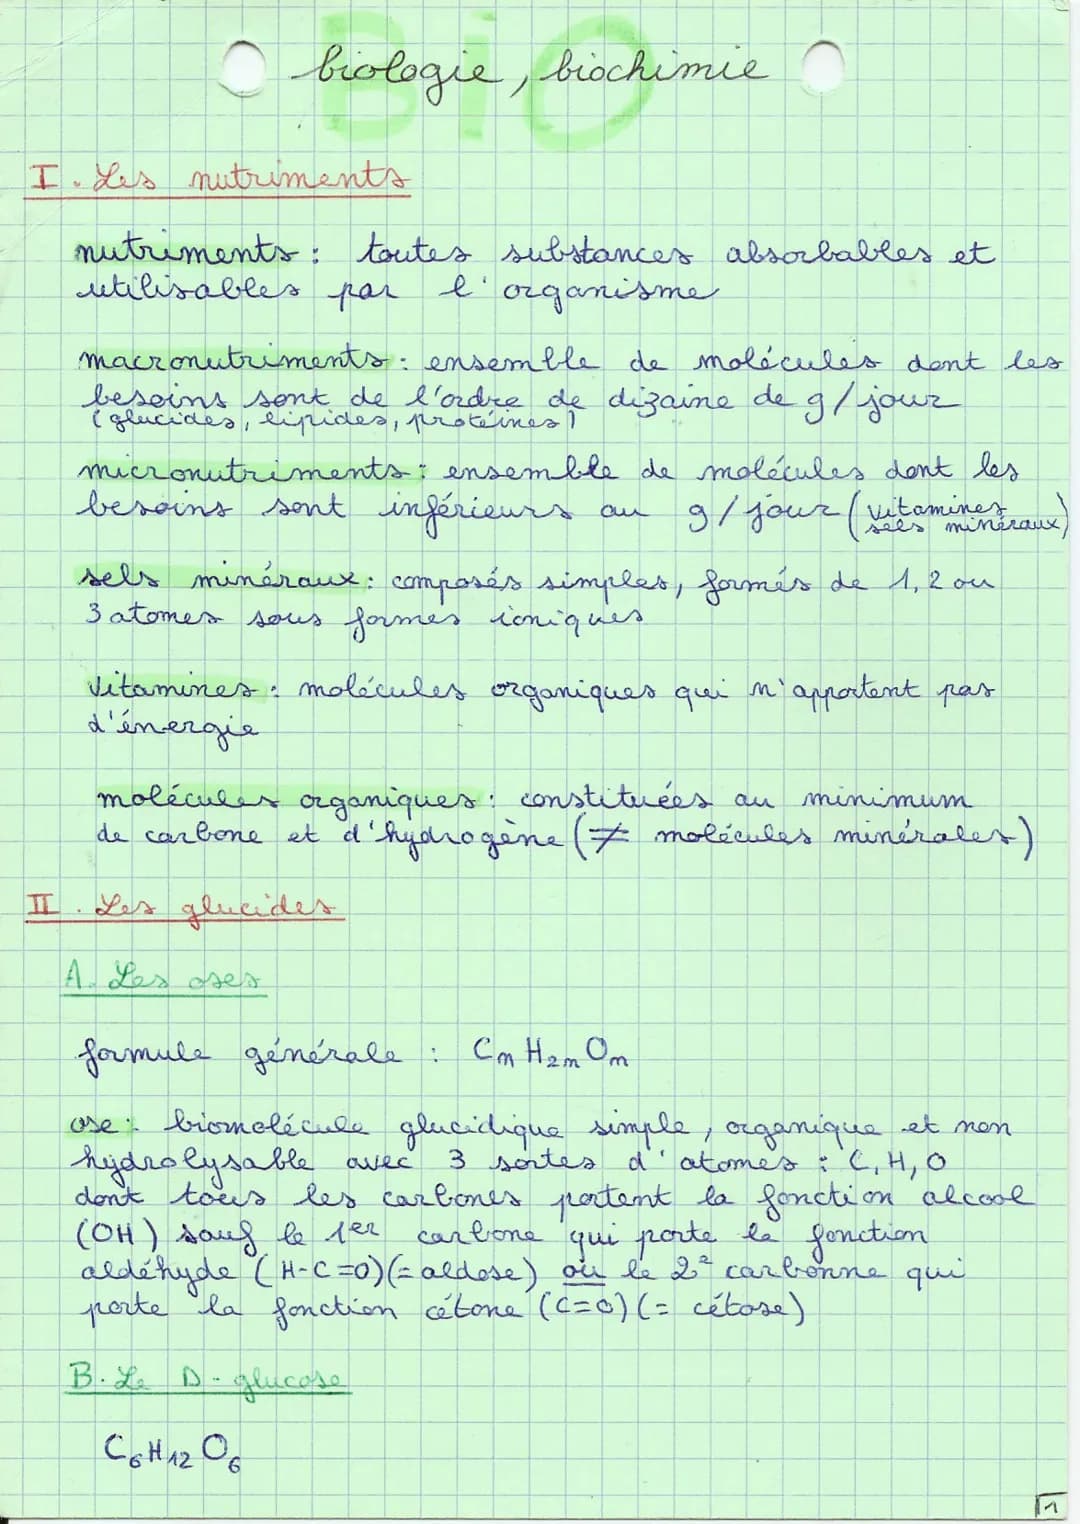 BIO
biologie, biochimie
I. Les nutriments
nutriments : toutes substances absorbables et
utilisables par l'organisme
macronutriments : ensemble de molécules dont les
besoins sont de l'ordre de dizaine de g/jour
(glucides, lipides, protéines)
micronutriments : ensemble de molécules dont les
besoins sont inférieurs au g/jour (vitamines
sels minéraux)
sels minéraux : composés simples, formés de 1, 2 ou
3 atomes sous formes ioniques
vitamines : molécules organiques qui n'apportent pas
d'énergie
molécules organiques : constituées au minimum
de carbone et d'hydrogène (≠ molécules minérales)
II. Les glucides
A. Les oses
formule générale : CnH2nOn
ose : biomolécule glucidique simple, organique et non
hydrolysable avec 3 sortes d'atomes : C, H, O
dont tous les carbones portent la fonction alcool
(OH) sauf le 1er carbone qui porte la fonction
aldéhyde (H-C=O)(= aldose) ou le 2e carbonne qui
porte la fonction cétone (C=O)(= cétose)
B. Le D-glucose
C6H12O6
1